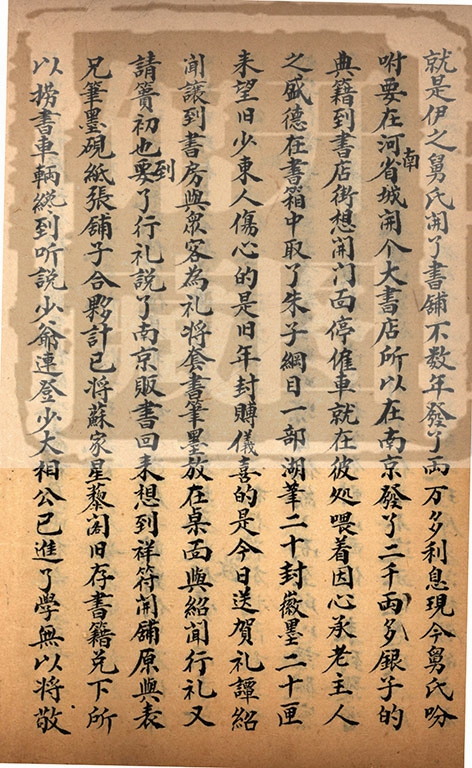 就是伊之舅氏開了書舖不数年發了両万多利息現今舅氏吩
咐要在河南省城開个大書店所以在南京發了二千両多銀子的
典籍到書店街想開门面停傕車就在彼処喂着因心承老主人
之盛德在書箱中取了朱子綱目一部湖筆二十封徽墨二十匣
来望旧少東人傷心的是旧年封賻儀喜的是今日送賀礼譚紹
聞譲到書房與衆客為礼将套書筆墨放在桌面與紹聞行礼又
請簣初也要到了行礼説了南京販書回来想到祥符開舖原與表
兄筆墨硯紙張舖子合夥計已将蘇家星藜阁旧存書籍兑下所
以捞書車輌纔到听説少爷連登少大相公已進了學無以将敬